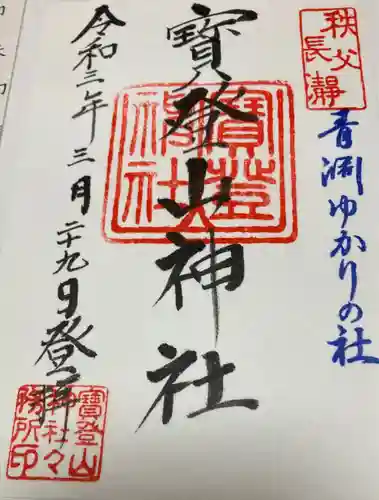 秩父
長瀞
青淵ゆかりの社
寶登山神社
寶登山
神社
令和三年三月二十九日登拝
寶登山
神社々
務所印